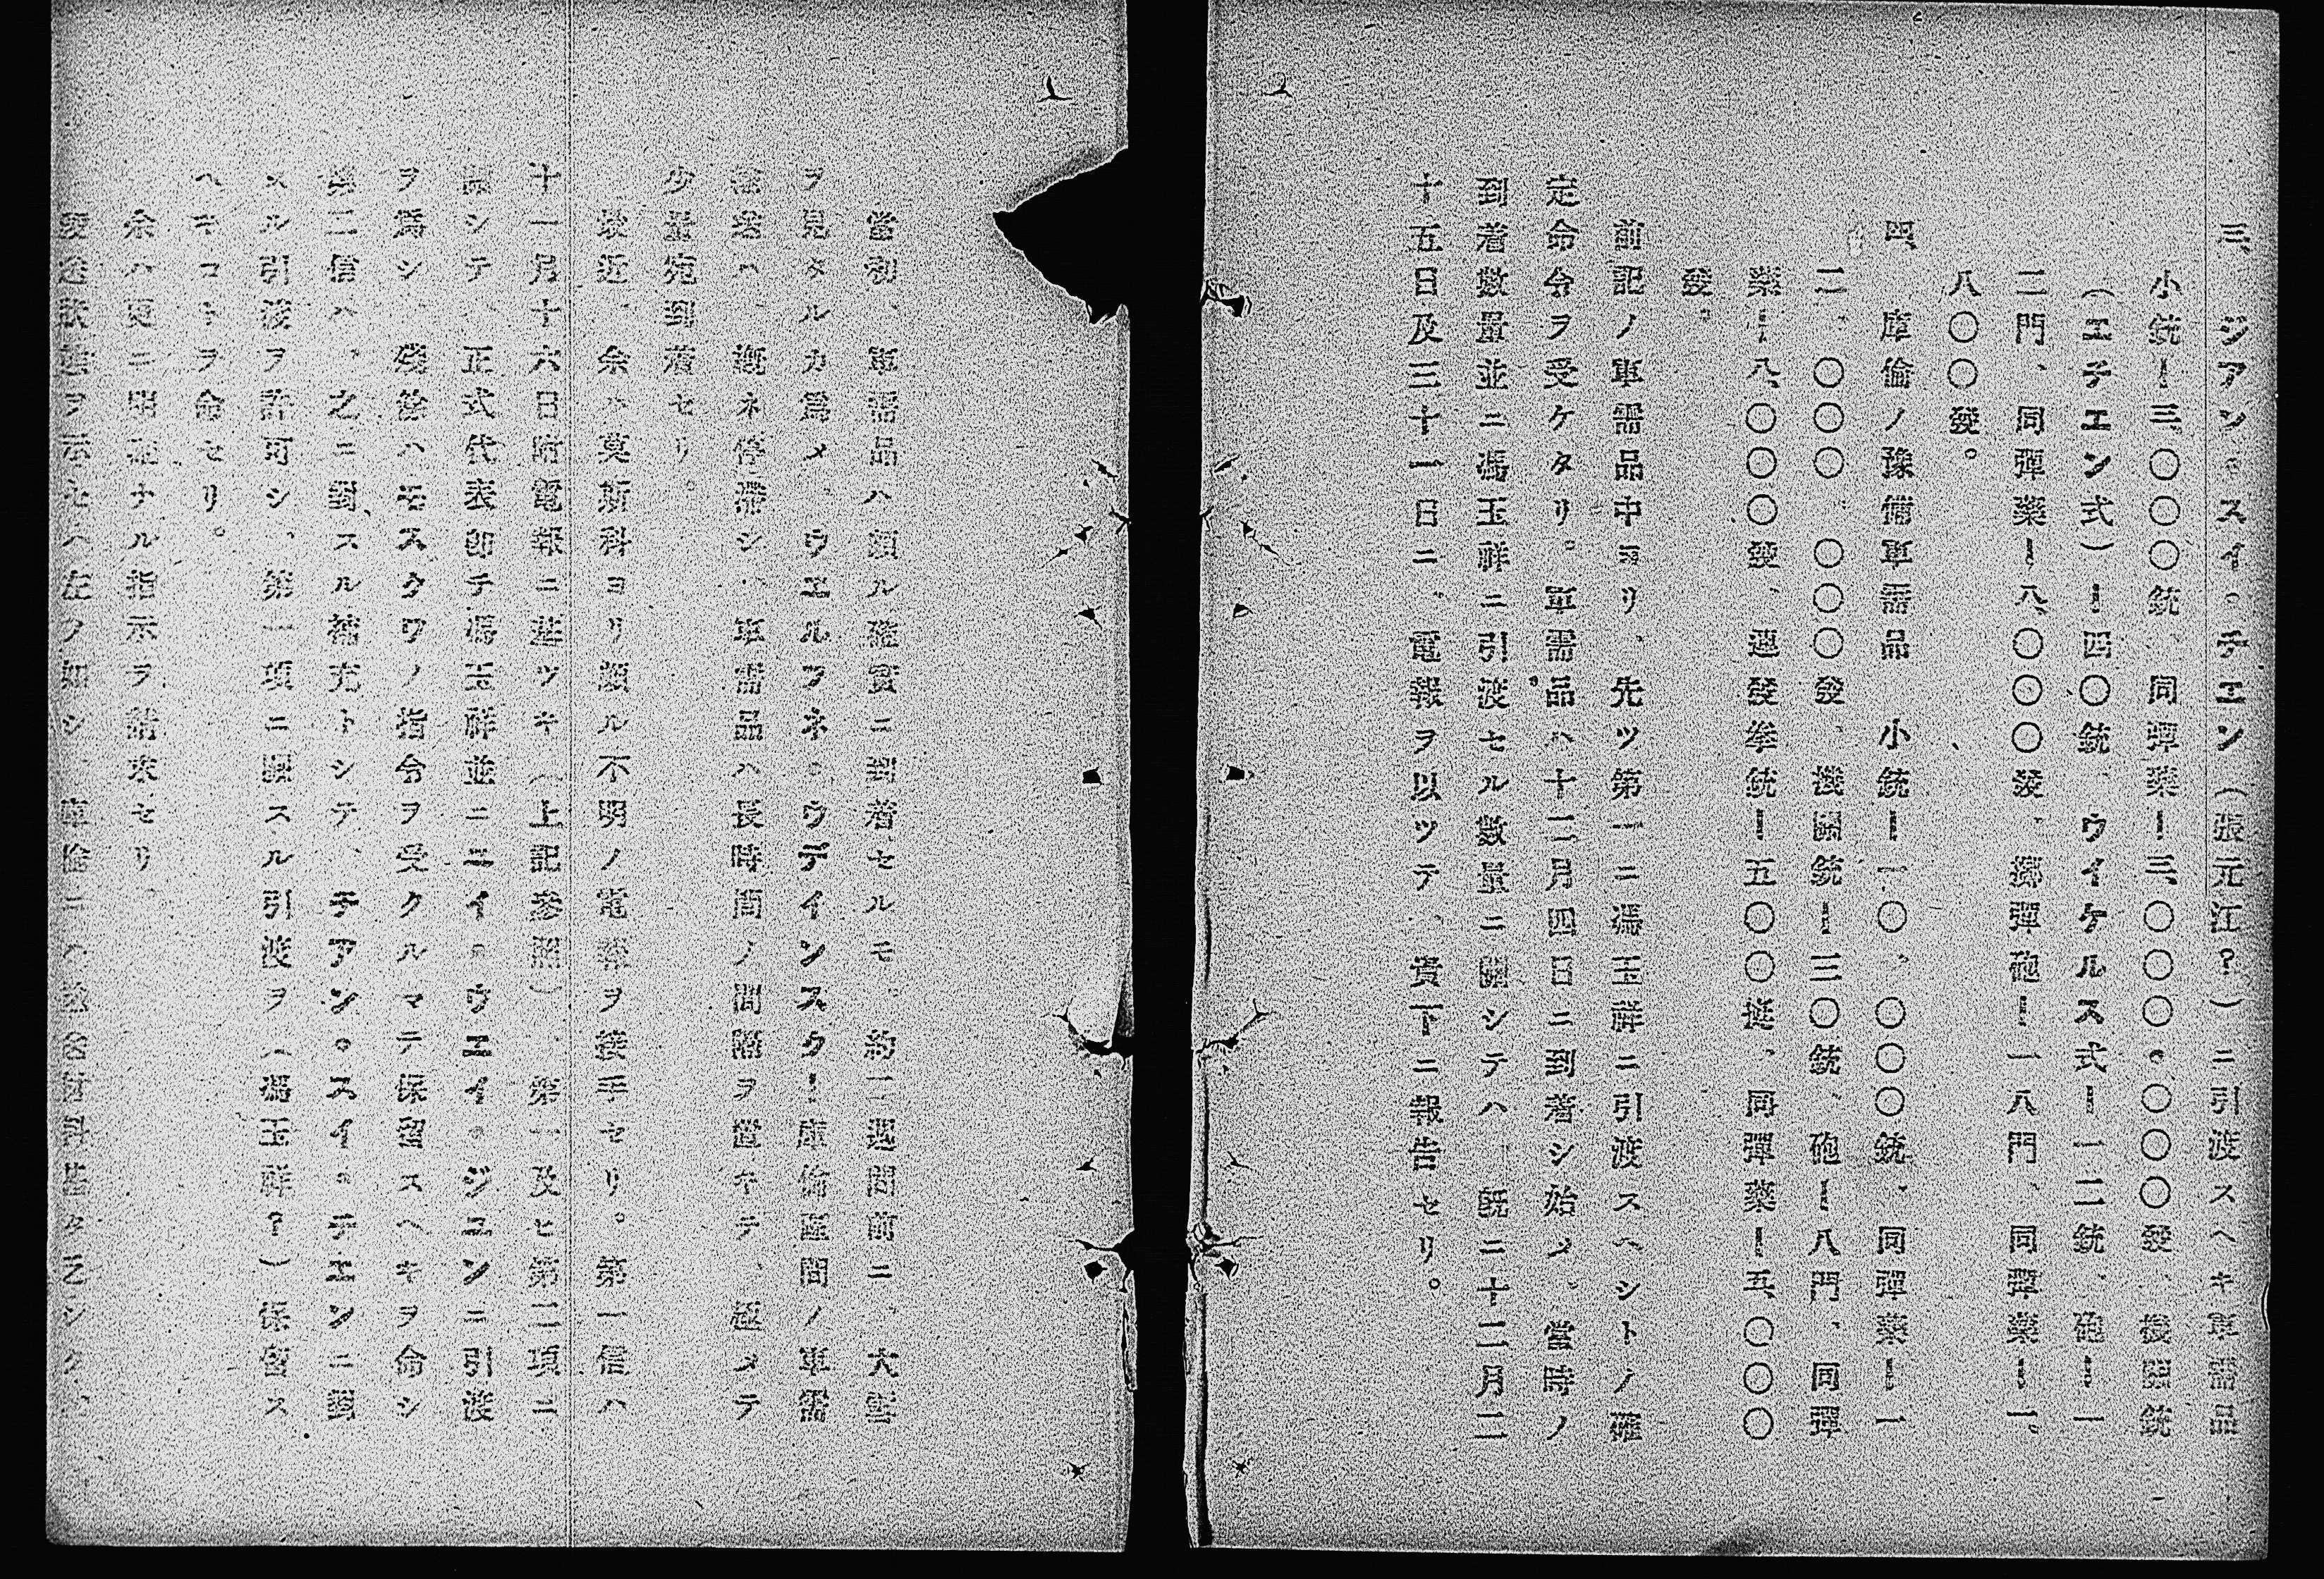 三、ジアン。スイ。チエン（張元江？）ニ引渡スヘキ軍需品
小銃ー三、〇〇〇銃、同彈藥ー三、〇〇〇。〇〇〇發、機關銃
（エチエン式）ー四〇銃、ウイケルス式ー一二銃、砲ー一
二門、同彈藥ー八、〇〇〇發、擲彈砲ー一八門、同彈藥ー一。
八〇〇發。
四、庫倫ノ豫備軍需品　小銃ー一〇、〇〇〇銃、同彈藥ー一
二、〇〇〇、〇〇〇發、機關銃ー三〇銃、砲ー八門、同彈
藥ー八、〇〇〇發、連發拳銃ー五〇〇挺、同彈藥ー五、〇〇〇
發。
前記ノ軍需品中ヨリ、先ツ第一ニ馮玉祥ニ引渡スヘシトノ確
定命令ヲ受ケタリ。軍需品ハ十二月四日ニ到着シ始メ。當時ノ
到着數量並ニ馮玉祥ニ引渡セル數量ニ關シテハ　既ニ十二月二
十五日及三十一日ニ、電報ヲ以ツテ、貴下ニ報告セリ。
當初、軍需品ハ頗ル確實ニ到着セルモ、約二週間前ニ、大雪
ヲ見タルカ爲メ、ウエルフネ。ウデインスクー庫倫區間ノ軍需
ハ、概ネ停滯シ、軍需品ハ長時間ノ間隔ヲ置キテ、極メテ
少量宛到着セリ。
最近、余ハ莫斯科ヨリ頗ル不明ノ電報ヲ接手セリ。第一信ハ
十一月十六日附電報ニ基ツキ（上記參照）、第一及ヒ第二項ニ
關シテ、正式代表卽チ馮玉祥並ニニイ。ウエイ。ジエンニ引渡
ヲ爲シ、殘餘ハモスクワノ指令ヲ受クルマテ保留スヘキヲ命シ
第二信ハ、之ニ對スル補充トシテ、チアン。スイ。テエンニ對
スル引渡ヲ許可シ、第一項ニ關スル引渡ヲ（馮玉祥？）保留ス
ヘキコトヲ命セリ。
余ハ更ニ明確ナル指示ヲ請求セリ、
ヲ示セハ左ノ如シ、庫倫ニハ